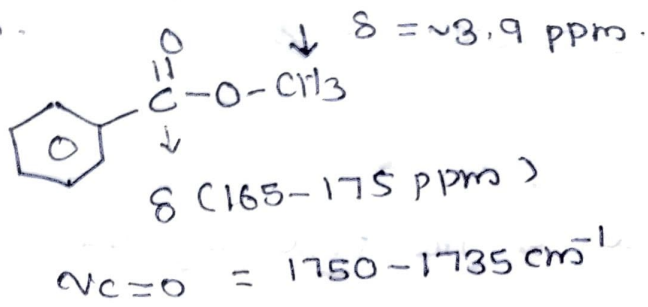 δ = ~3.9 ppm.
O
C-O-CH3
δ (165-175 ppm)
νC=O = 1750-1735 cm⁻¹